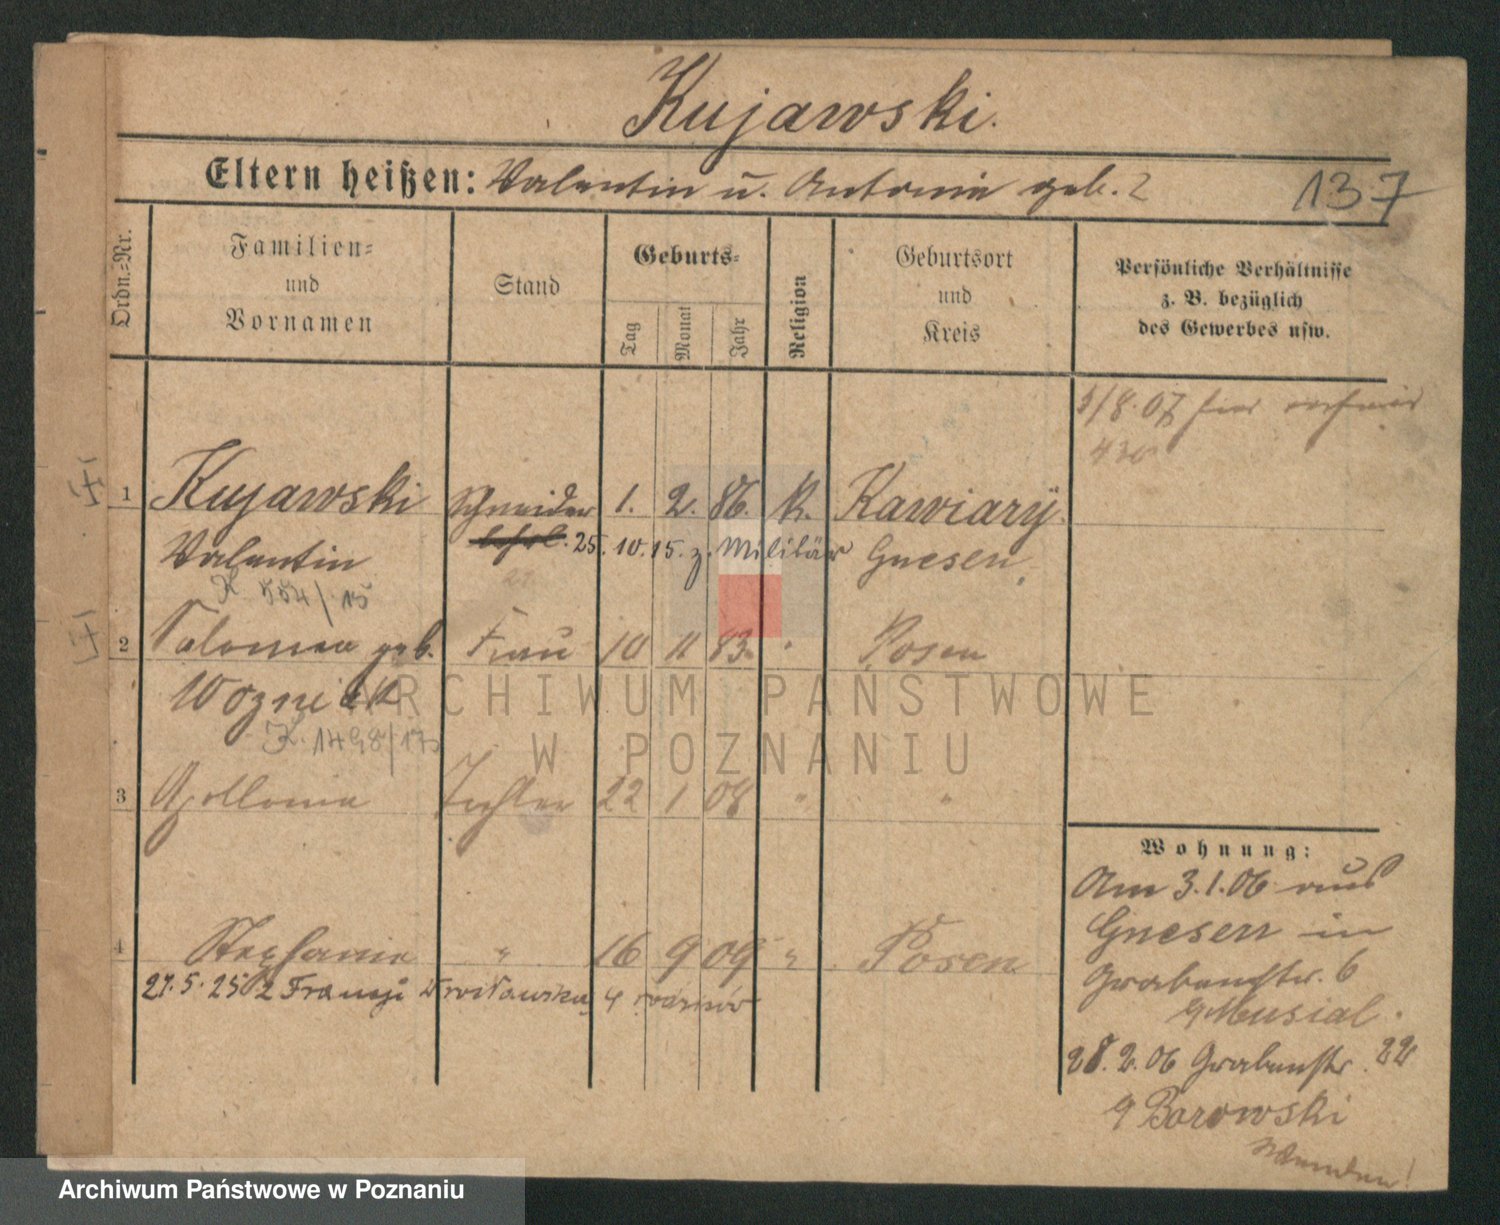 Kujawski.
Eltern heißen: Valentin u. Antonie geb. ?
137
Ordn.=Nr.
Familien=
und
Vornamen
Stand
Geburts=
Tag
Monat
Jahr
Religion
Geburtsort
und
Kreis
Persönliche Verhältnisse
z. B. bezüglich
des Gewerbes usw.
/8. 07 hier
1 Kujawski Schneider 1. 2. 86. k. Kawiary
Valentin 25. 10. 15. z. Militär Gnesen
K 554/15
2 Salomea geb. Frau 10 11 83. " Posen
Wozniak
K. 1498/17
3 Apollonia Tochter 22 1 08 " "
4 Stephanie " 16 9 09 " Posen
27. 5. 25 z Francji
Wohnung:
Am 3. 1. 06 aus
Gnesen in
Grabenstr. 6
Musial.
28. 2. 06 Grabenstr. 22
Borowski
Wenden!
ARCHIWUM PAŃSTWOWE
W POZNANIU
Archiwum Państwowe w Poznaniu